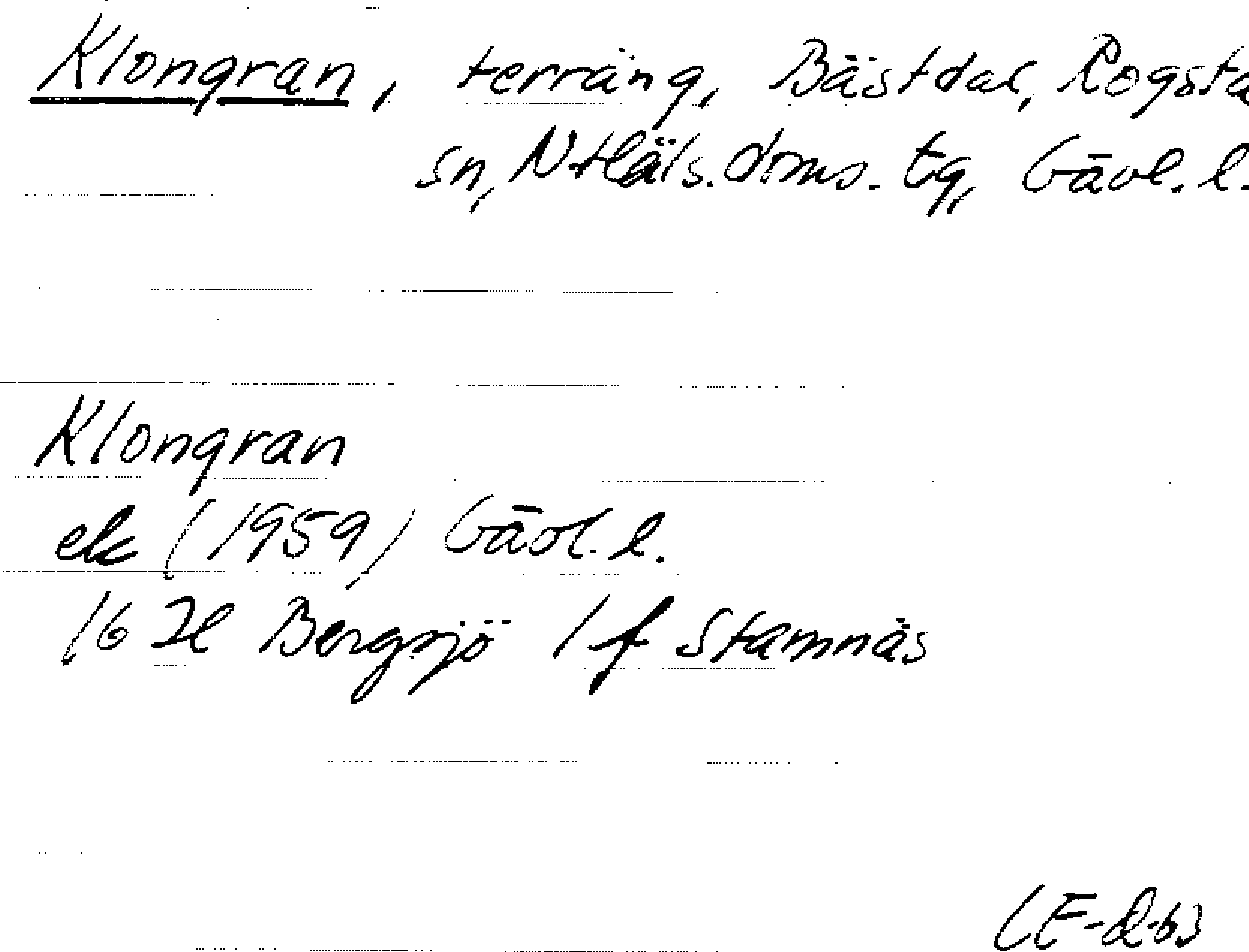 Klongran, terräng, Bästdal, Rogsta
sn, N Häls. doms. tg, Gävl. l.
Klongran
ek (1959) Gävl. l.
16 H Bergsjö 1 f Stamnäs